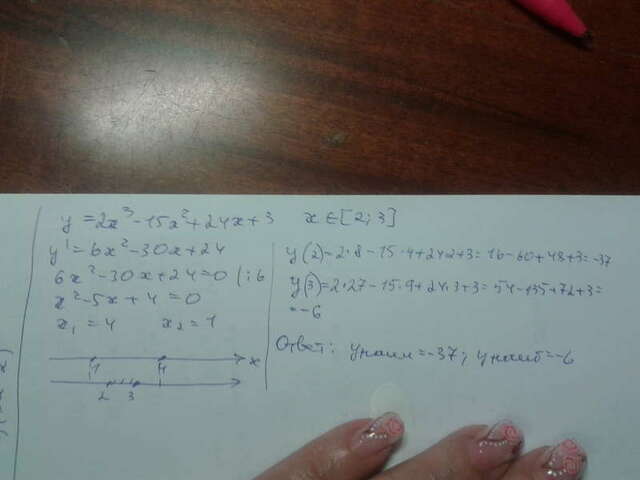 y = 2x³ - 15x² + 24x + 3 x ∈ [2; 3]
y' = 6x² - 30x + 24
6x² - 30x + 24 = 0 (:6
x² - 5x + 4 = 0
x₁ = 4 x₂ = 1
1 4 x
2 3
y(2) = 2·8 - 15·4 + 24·2 + 3 = 16 - 60 + 48 + 3 = -37
y(3) = 2·27 - 15·9 + 24·3 + 3 = 54 - 135 + 72 + 3 =
= -6
Ответ: yнаим = -37; yнаиб = -6